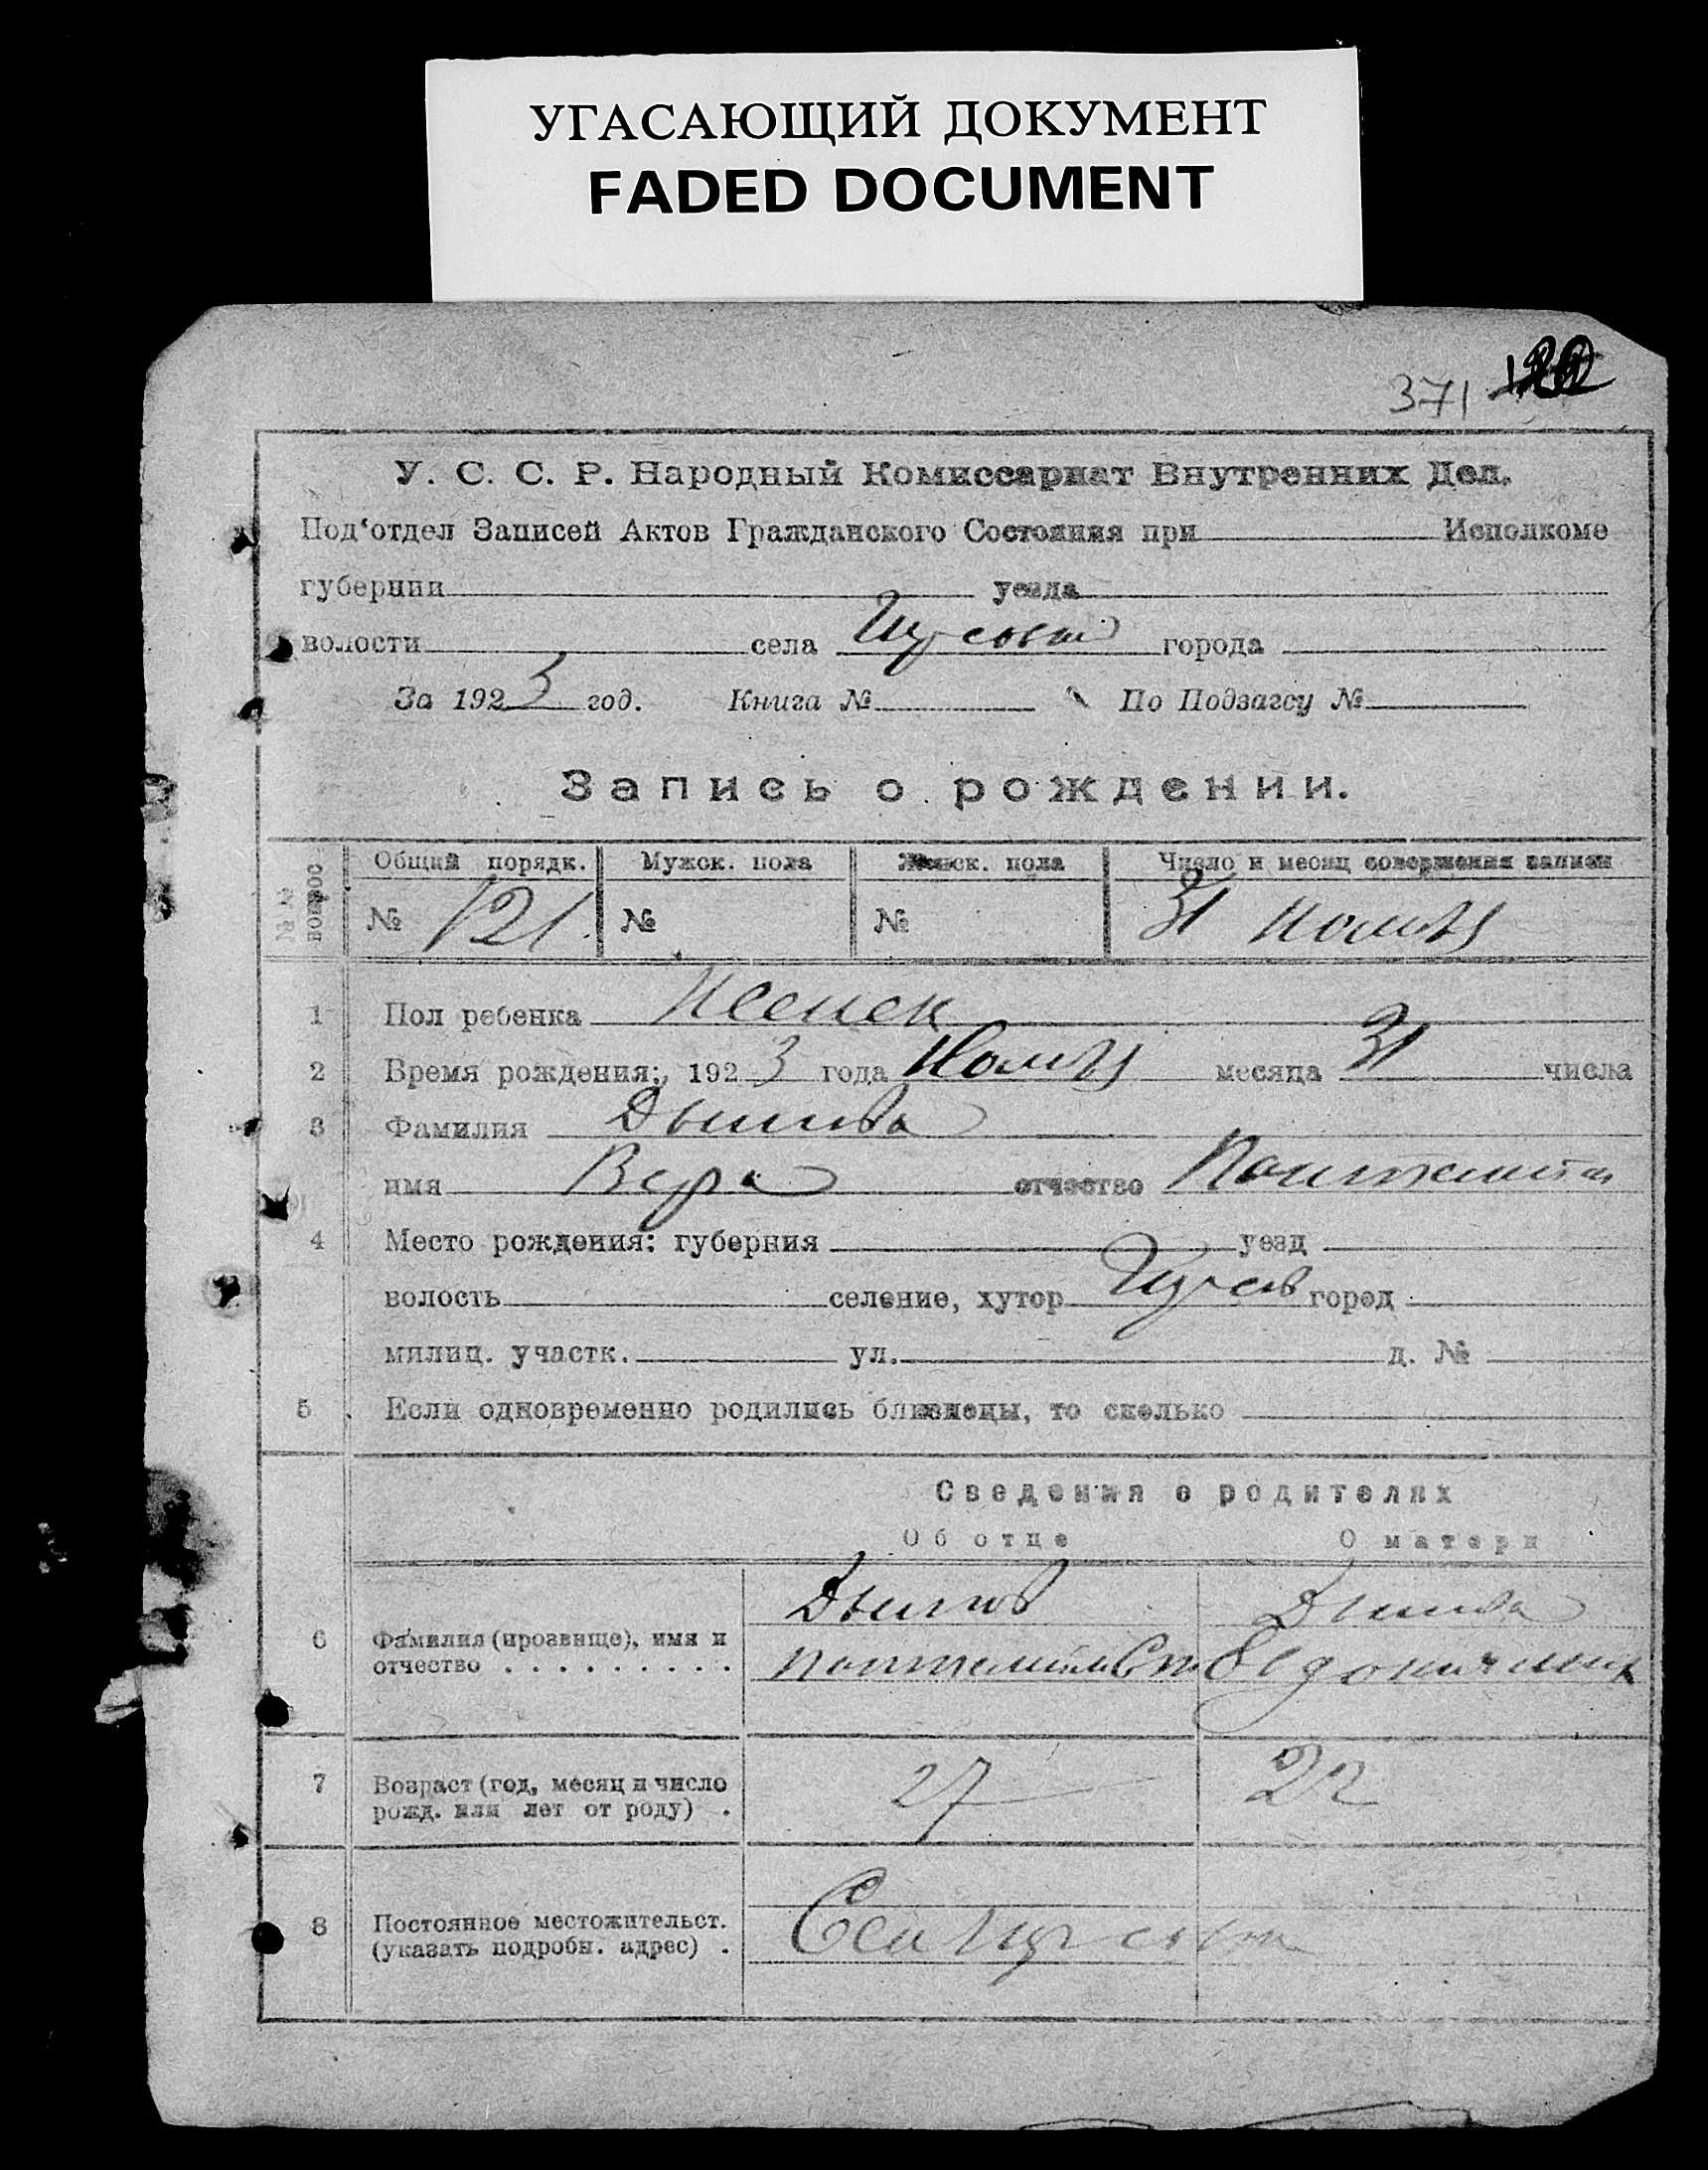 УГАСАЮЩИЙ ДОКУМЕНТ
FADED DOCUMENT
371
У. С. С. Р. Народный Комиссариат Внутренних Дел.
Под‘отдел Записей Актов Гражданского Состояния при Исполкоме
губернии уезда
волости села города
За 1923 год. Книга № По Подзагсу №
Запись о рождении.
№№ вопрос
Общий порядк. Мужск. пола Женск. пола Число и месяц совершения записи
№ 121 № № 31
1 Пол ребенка Женск
2 Время рождения: 1923 года месяца 31 числа
3 Фамилия
имя Вера отчество
4 Место рождения: губерния уезд
волость селение, хутор город
милиц. участк. ул. д. №
5 Если одновременно родились близнецы, то сколько
Сведения о родителях
Об отце О матери
6 Фамилия (прозвище), имя и
отчество . . . . . . . . .
7 Возраст (год, месяц и число
рожд. или лет от роду) . 27 22
8 Постоянное местожительст.
(указать подробн. адрес) .